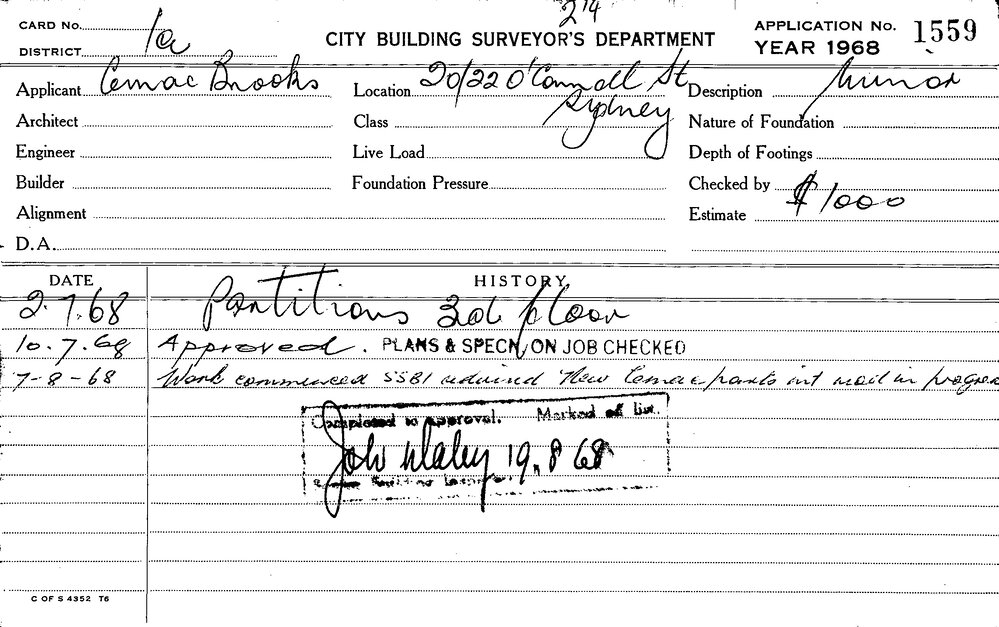 2'4
CARD No. APPLICATION No. 1559
DISTRICT 1a CITY BUILDING SURVEYOR'S DEPARTMENT YEAR 1968
Applicant Cemac Brooks Location 20/22 O'Connell St Sydney Description Minor
Architect Class Nature of Foundation
Engineer Live Load Depth of Footings
Builder Foundation Pressure Checked by
Alignment Estimate $1000
D.A.
DATE HISTORY
2.7.68 Partitions 3rd floor
10.7.68 Approved. PLANS & SPECN ON JOB CHECKED
7-8-68 Work commenced SSBI advised New Cemac parts int wall in progress
Completed to approval. Marked off list.
19.8.68
C OF S 4352 T6